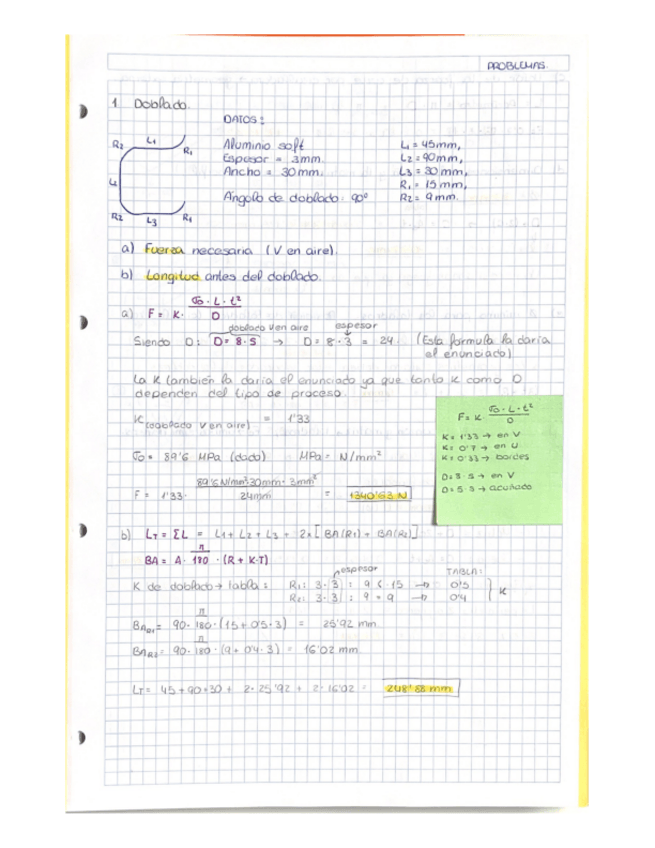 PROBLEMAS.
1. Doblado.
DATOS:
R2 L1 R1
L2
R2 L3 R1
Aluminio soft
Espesor = 3mm.
Ancho = 30mm.
Ángolo de doblado: 90º
L1 = 45mm,
L2 = 90mm,
L3 = 30mm,
R1 = 15mm,
R2 = 9mm.
a) Fuerza necesaria (V en aire).
b) Longitud antes del doblado.
a) F = K · σ0 · L · t² / D
doblado V en aire espesor
Siendo D: D = 8 · S → D = 8 · 3 = 24. (Esta formula la daría el enunciado)
La K también la daría el enunciado ya que tanto K como D
dependen del tipo de proceso.
K (doblado V en aire) = 1'33
σ0 = 89'6 MPa (dado) MPa = N/mm²
F = 1'33 · 89'6N/mm²·30mm·3mm² / 24mm = 1340'63 N
F = K · σ0 · L · t² / D
K = 1'33 → en V
K = 0'7 → en U
K = 0'33 → bordes
D = 8 · S → en V
D = 5 · S → acuñado
b) LT = ΣL = L1 + L2 + L3 + 2x[BA(R1) + BA(R2)]
BA = A · π/180 · (R + K·T)
espesor TABLA:
K de doblado → tabla: R1: 3·3 : 9 < 15 → 0'5
R2: 3·3 : 9 = 9 → 0'4
K
BAR1 = 90 · π/180 · (15 + 0'5 · 3) = 25'92 mm
BAR2 = 90 · π/180 · (9 + 0'4 · 3) = 16'02 mm
LT = 45 + 90 + 30 + 2 · 25'92 + 2 · 16'02 = 248'88 mm